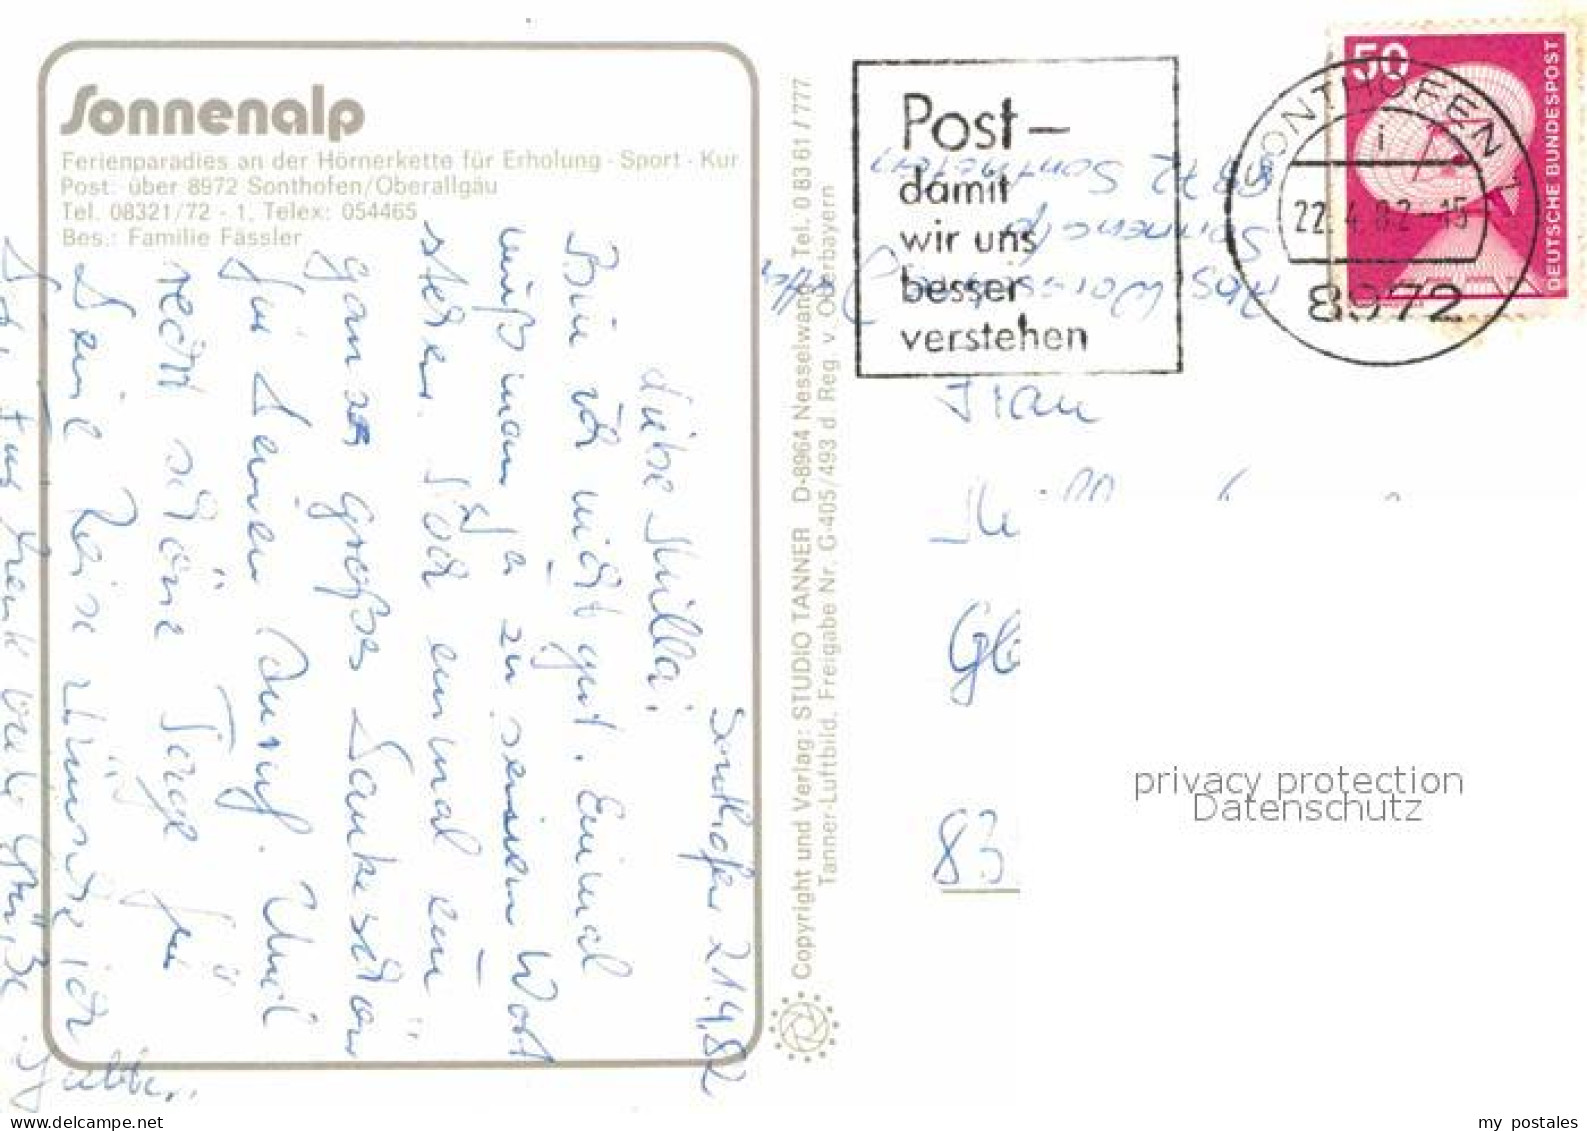 Sonnenalp
Ferienparadies an der Hörnerkette für Erholung · Sport · Kur
Post: über 8972 Sonthofen/Oberallgäu
Tel. 08321/72 - 1, Telex: 054465
Bes.: Familie Fässler
Sonthofen 21.4.82
Liebe Milla!
Bin ich nicht gut. Einmal
muß man ja zu seinem Wort
stehen. Noch einmal ein
ganz großes Dankeschön
für Deinen Anruf. Und
recht schöne Tage für
Deine Reise wünsche ich
Grüße
Copyright und Verlag: STUDIO TANNER D-8964 Nesselwang Tel. 0 83 61 / 777
Tanner-Luftbild, Freigabe Nr. G-405/493 d. Reg. v. Oberbayern
Post–
damit
wir uns
besser
verstehen
SONTHOFEN 1
i
22.4.82-15
8972
50
DEUTSCHE BUNDESPOST
Abs.
Sonnenalp
8972 Sonthofen
Frau
83
privacy protection
Datenschutz
www.delcampe.net
my postales